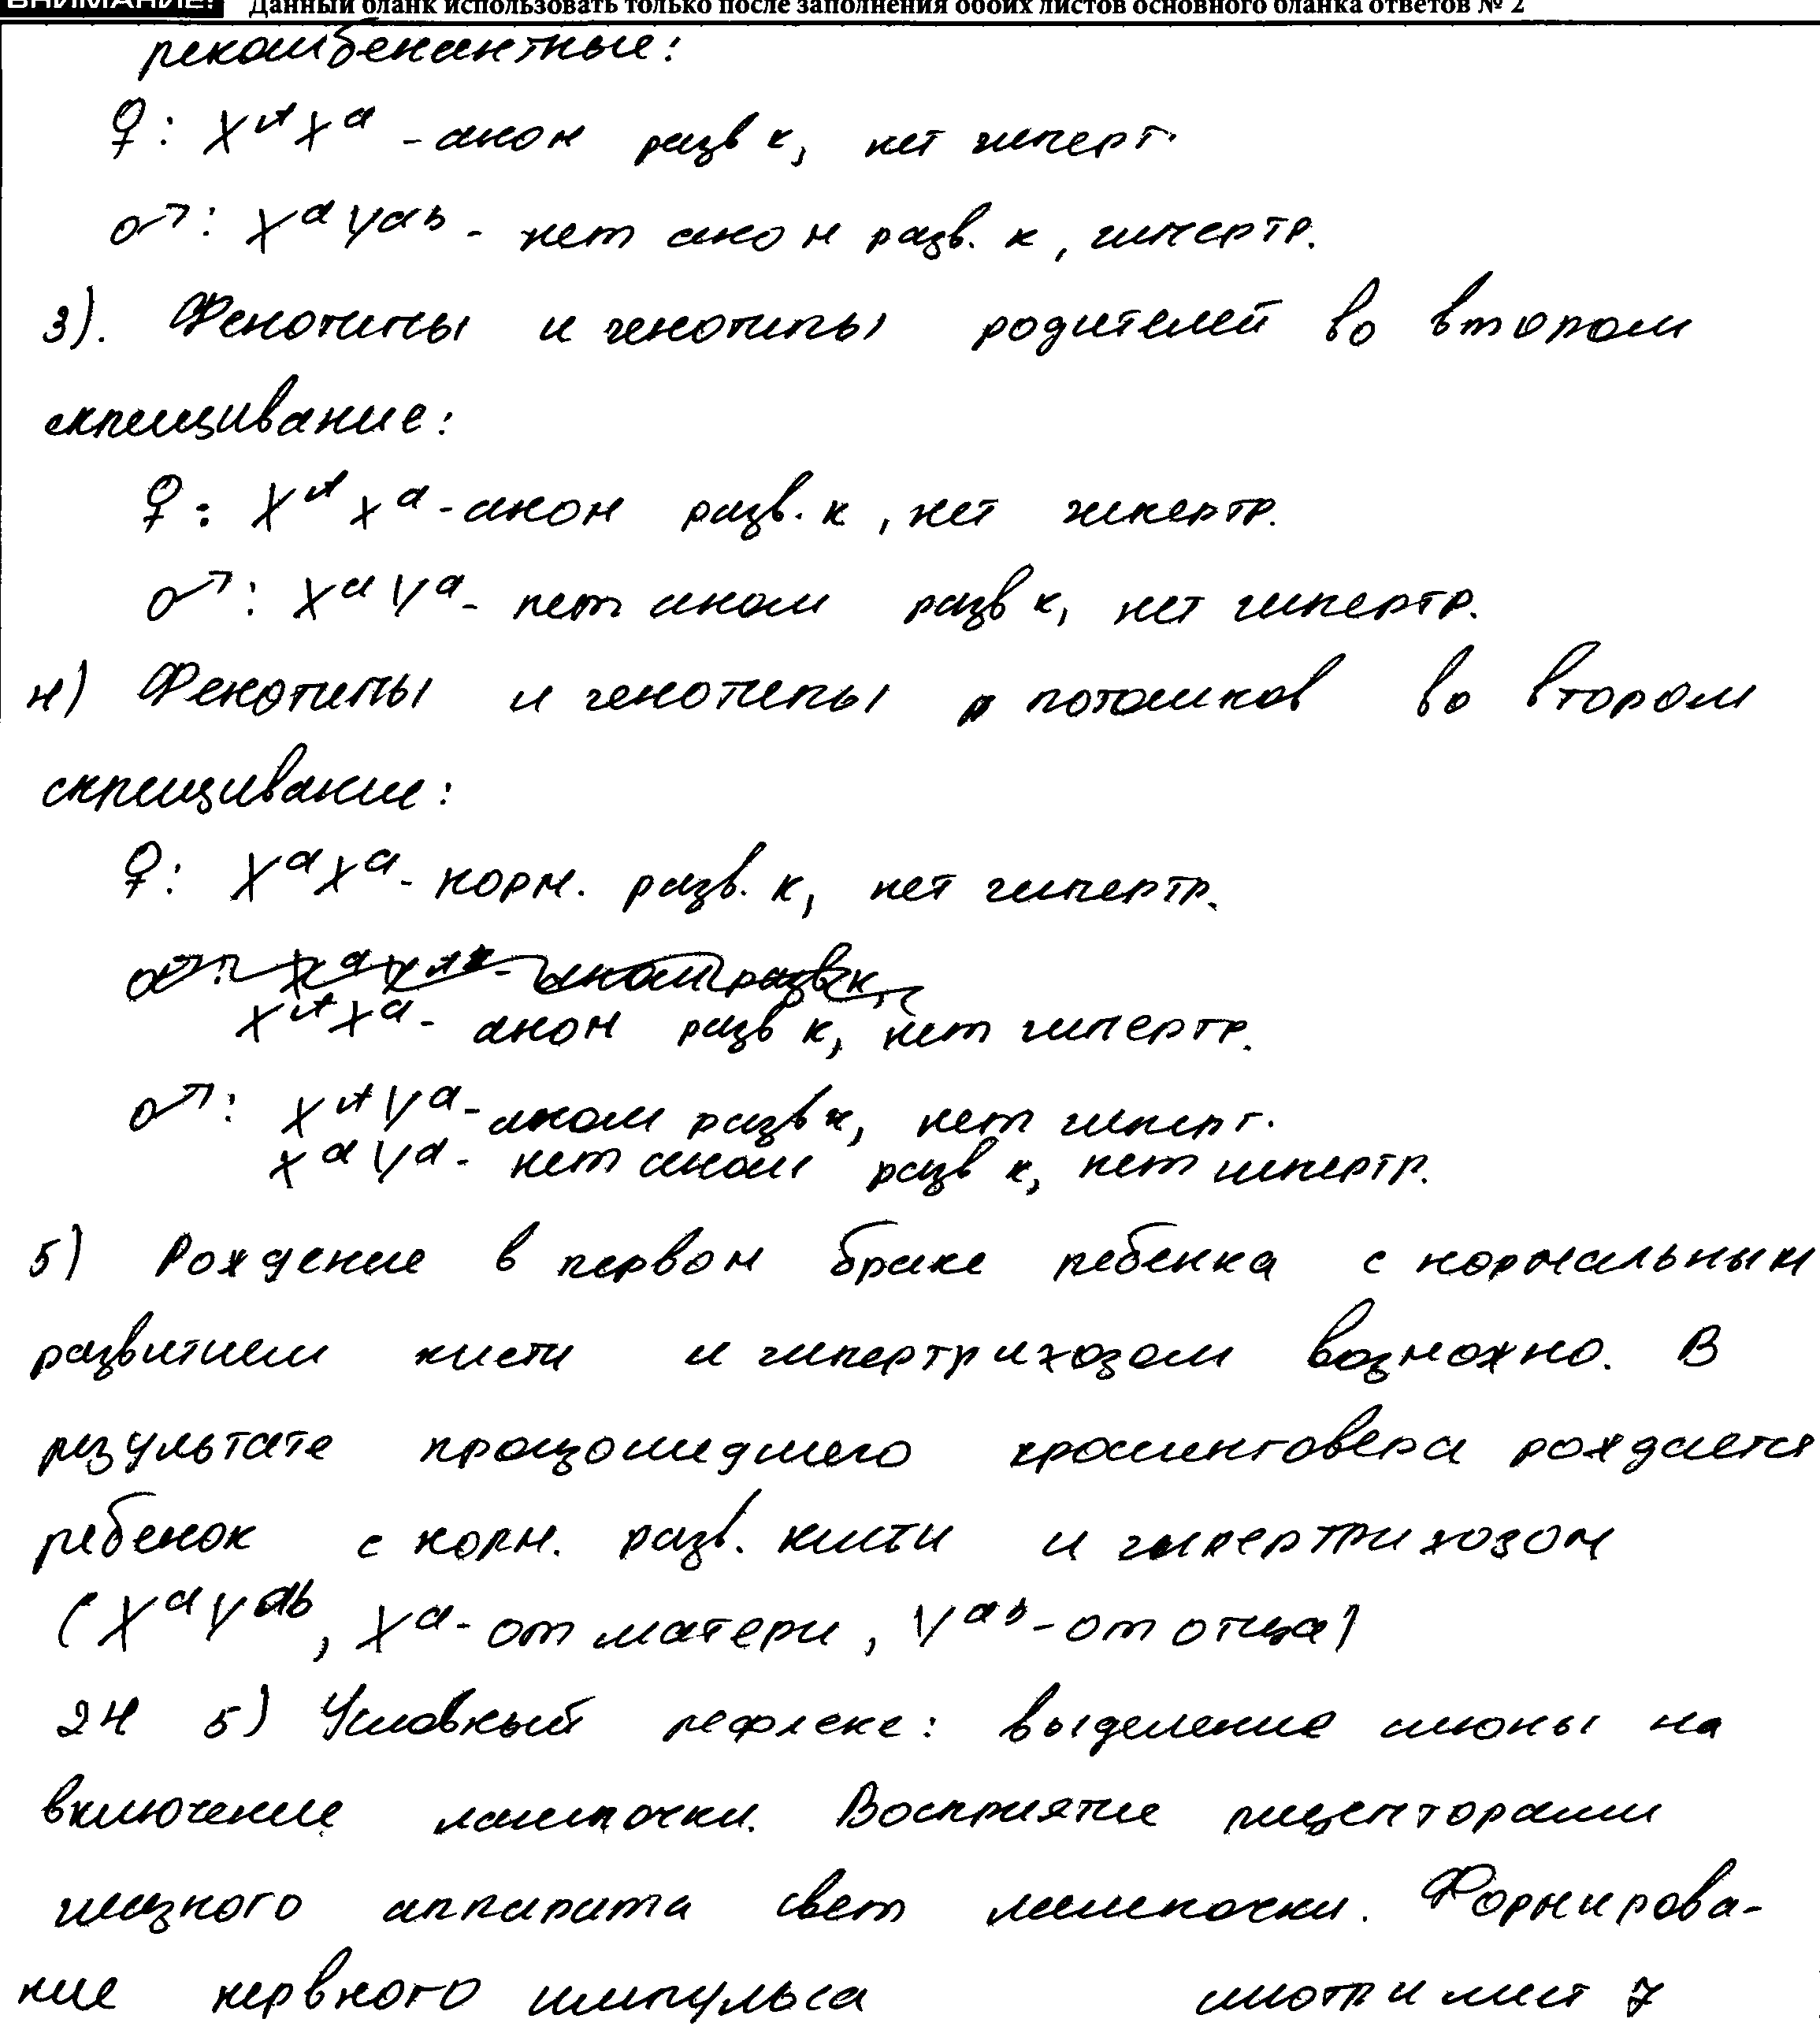 ВНИМАНИЕ! Данный бланк использовать только после заполнения обоих листов основного бланка ответов № 2
рекомбенантные:
♀: XᴬXᵃ - аном разв к, нет гиперт.
♂: XᵃYᵃᵇ - нет аном разв. к, гипертр.
3). Фенотипы и генотипы родителей во втором
скрещивание:
♀: XᴬXᵃ - аном разв. к, нет гипертр.
♂: XᵃYᵃ - нет аном разв к, нет гипертр.
4) Фенотипы и генотипы потомков во втором
скрещивание:
♀: XᵃXᵃ - норм. разв. к, нет гипертр.
XᴬXᵃ - аном разв к, нет гипертр.
♂: XᴬYᵃ - аном разв к, нет гиперт.
XᵃYᵃ - нет аном разв к, нет гипертр.
5) Рождение в первом браке ребенка с нормальным
развитием кисти и гипертрихозом возможно. В
результате произошедшего кроссинговера рождается
ребенок с норм. разв. кисти и гипертрихозом
(XᵃYᵃᵇ, Xᵃ - от матери, Yᵃᵇ - от отца)
24 5) Условный рефлекс: выделение слюны на
включение лампочки. Восприятие рецепторами
глазного аппарата свет лампочки. Формирова-
ние нервного импульса смотри лист 7